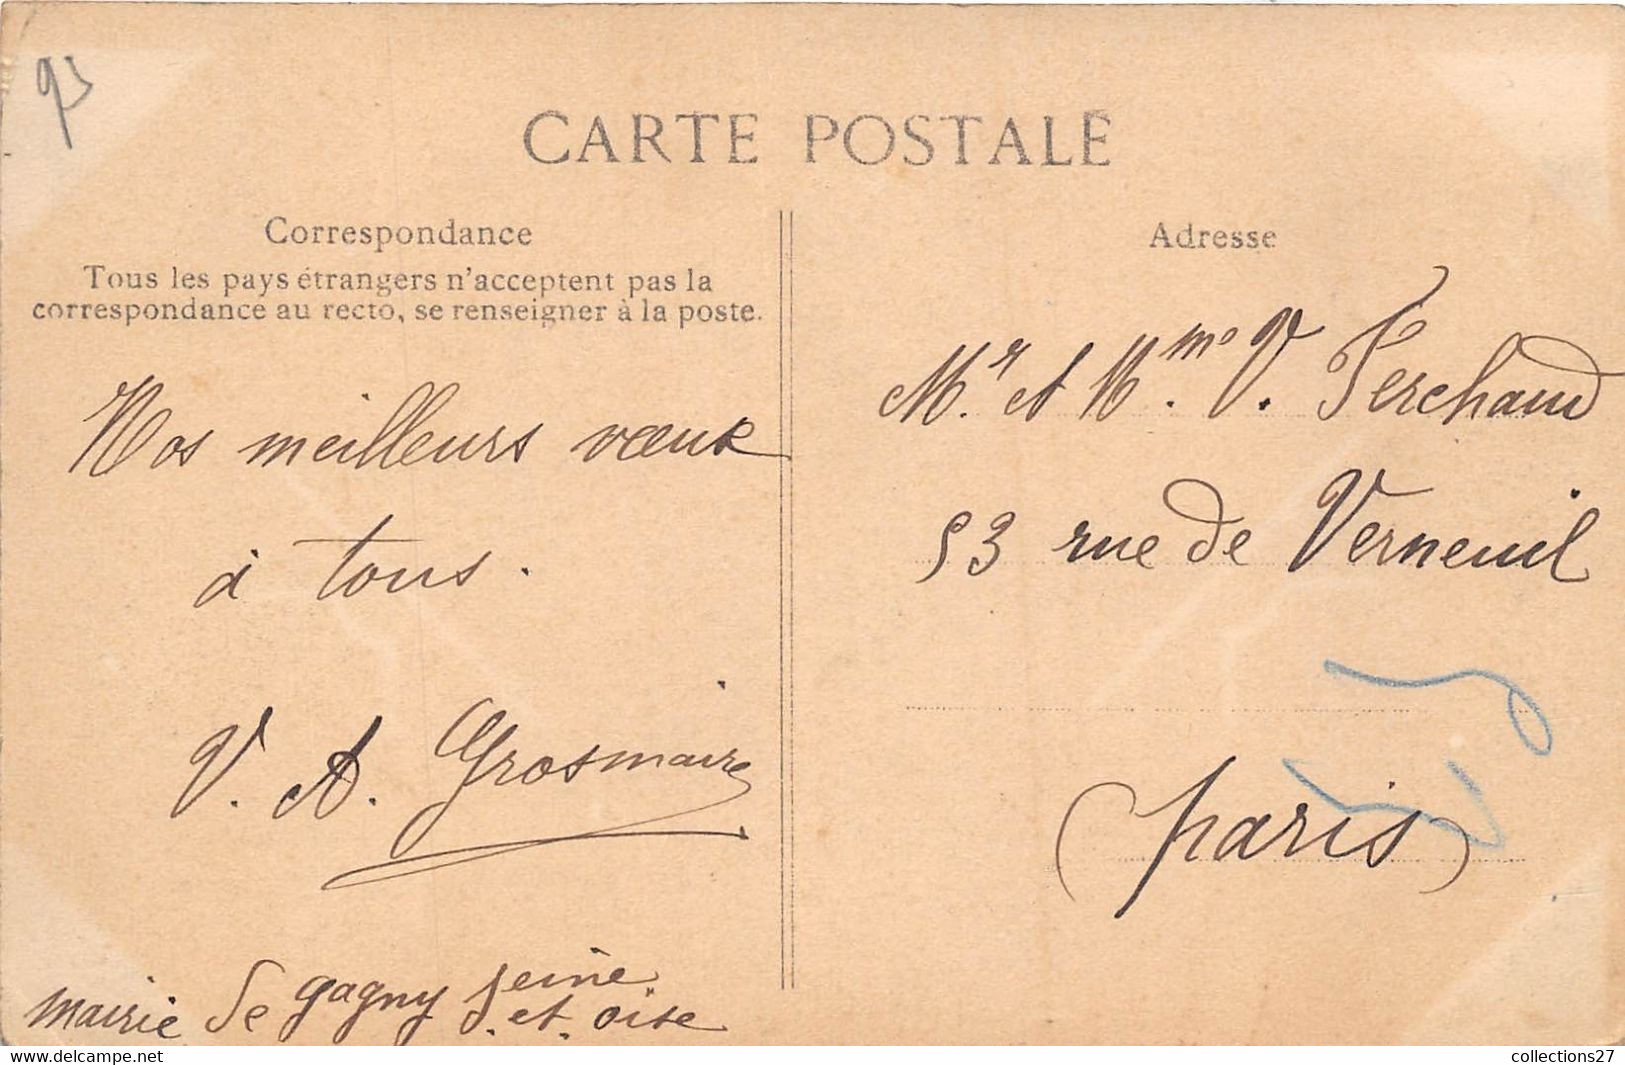 93
CARTE POSTALE
Correspondance
Tous les pays étrangers n'acceptent pas la
correspondance au recto, se renseigner à la poste.
Nos meilleurs vœux
à tous.
V. A. Grosmaire
Mairie de gagny Seine
S. et. oise
Adresse
Mr. et Mme. V. Ferchaud
53 rue de Verneuil
(Paris)
collections27